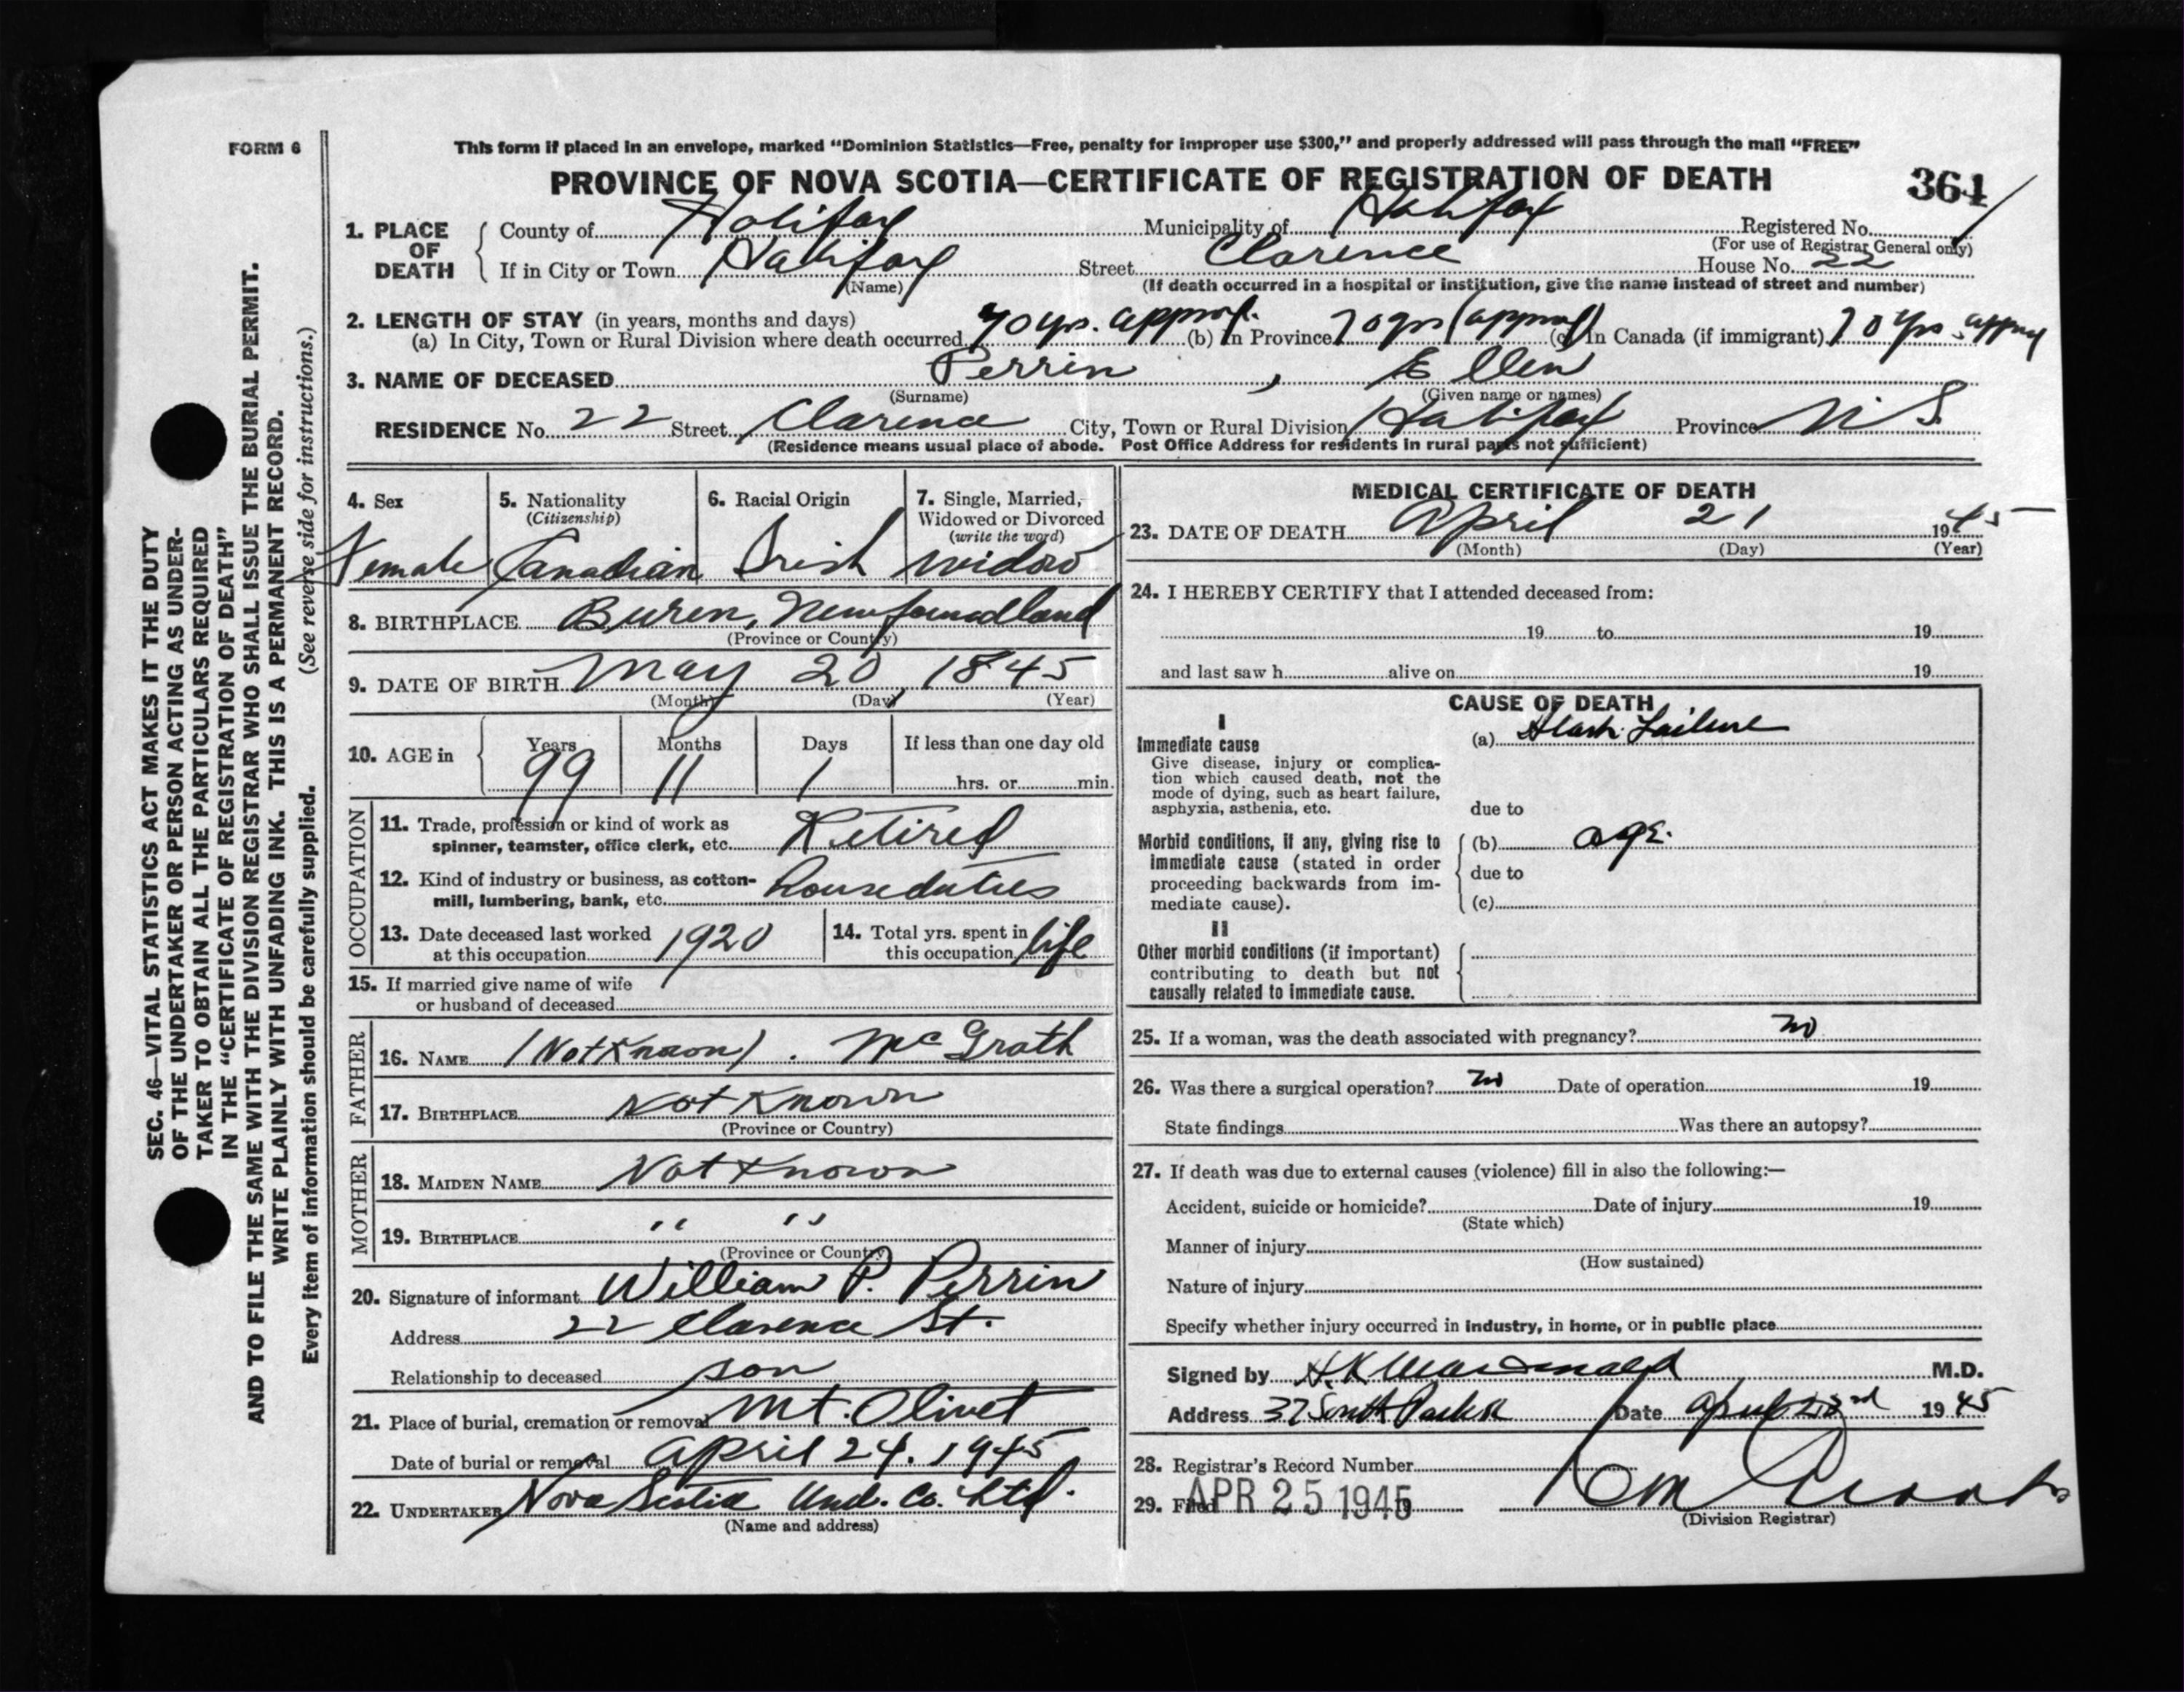 FORM 6
This form if placed in an envelope, marked "Dominion Statistics—Free, penalty for improper use $300," and properly addressed will pass through the mail "FREE"
PROVINCE OF NOVA SCOTIA—CERTIFICATE OF REGISTRATION OF DEATH
364
1. PLACE OF DEATH
County of Halifax Municipality of Halifax Registered No.
(For use of Registrar General only)
If in City or Town Halifax Street Clarence House No. 22
(Name) (If death occurred in a hospital or institution, give the name instead of street and number)
2. LENGTH OF STAY (in years, months and days)
(a) In City, Town or Rural Division where death occurred 70 yrs. approx. (b) In Province 70 yrs (approx) (c) In Canada (if immigrant) 70 yrs. approx
3. NAME OF DECEASED Perrin , Ellen
(Surname) (Given name or names)
RESIDENCE No. 22 Street Clarence City, Town or Rural Division Halifax Province N S.
(Residence means usual place of abode. Post Office Address for residents in rural parts not sufficient)
4. Sex Female
5. Nationality (Citizenship) Canadian
6. Racial Origin Irish
7. Single, Married, Widowed or Divorced (write the word) widow
8. BIRTHPLACE Buren, Newfoundland
(Province or Country)
9. DATE OF BIRTH May 20, 1845
(Month) (Day) (Year)
10. AGE in Years 99 Months 11 Days 1 If less than one day old
hrs. or min.
OCCUPATION
11. Trade, profession or kind of work as
spinner, teamster, office clerk, etc. Retired
12. Kind of industry or business, as cotton-
mill, lumbering, bank, etc. houseduties
13. Date deceased last worked
at this occupation 1920
14. Total yrs. spent in
this occupation life
15. If married give name of wife
or husband of deceased
FATHER
16. NAME (Not Known). McGrath
17. BIRTHPLACE Not Known
(Province or Country)
MOTHER
18. MAIDEN NAME Not Known
19. BIRTHPLACE " "
(Province or Country)
20. Signature of informant William P. Perrin
Address 22 Clarence St.
Relationship to deceased son
21. Place of burial, cremation or removal Mt. Olivet
Date of burial or removal April 24. 1945
22. UNDERTAKER Nova Scotia Und. Co. Ltd.
(Name and address)
MEDICAL CERTIFICATE OF DEATH
23. DATE OF DEATH April 21 1945
(Month) (Day) (Year)
24. I HEREBY CERTIFY that I attended deceased from:
19 to 19
and last saw h alive on 19
CAUSE OF DEATH
I
Immediate cause (a) Heart Failure
Give disease, injury or complica-
tion which caused death, not the
mode of dying, such as heart failure,
asphyxia, asthenia, etc. due to
Morbid conditions, if any, giving rise to (b) age.
immediate cause (stated in order
proceeding backwards from im- due to
mediate cause). (c)
II
Other morbid conditions (if important)
contributing to death but not
causally related to immediate cause.
25. If a woman, was the death associated with pregnancy? no
26. Was there a surgical operation? no Date of operation 19
State findings Was there an autopsy?
27. If death was due to external causes (violence) fill in also the following:—
Accident, suicide or homicide? Date of injury 19
(State which)
Manner of injury
(How sustained)
Nature of injury
Specify whether injury occurred in industry, in home, or in public place
Signed by H.K. MacDonald M.D.
Address 37 South Park St Date April 23rd 1945
28. Registrar's Record Number
29. Filed APR 25 1945
(Division Registrar)
SEC. 46—VITAL STATISTICS ACT MAKES IT THE DUTY
OF THE UNDERTAKER OR PERSON ACTING AS UNDER-
TAKER TO OBTAIN ALL THE PARTICULARS REQUIRED
IN THE "CERTIFICATE OF REGISTRATION OF DEATH"
AND TO FILE THE SAME WITH THE DIVISION REGISTRAR WHO SHALL ISSUE THE BURIAL PERMIT.
WRITE PLAINLY WITH UNFADING INK. THIS IS A PERMANENT RECORD.
Every item of information should be carefully supplied. (See reverse side for instructions.)